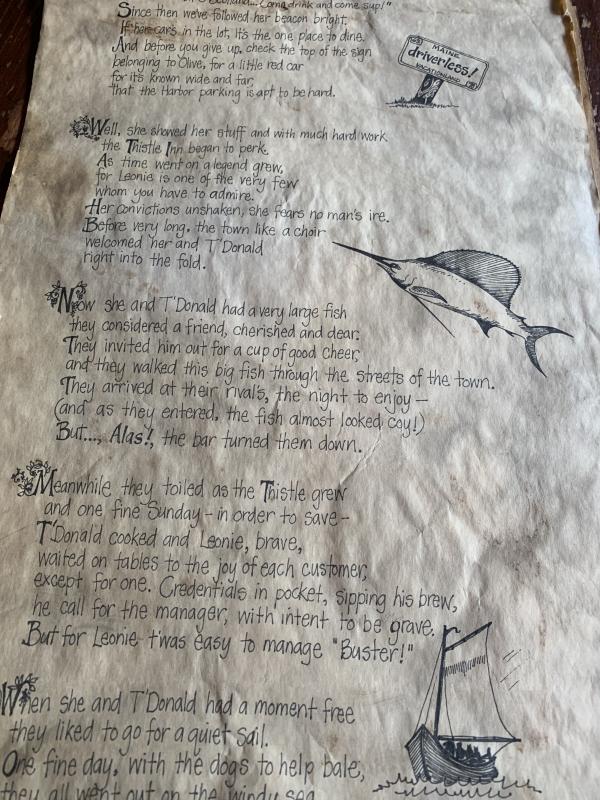 Come drink and come sup!"
Since then we've followed her beacon bright.
If her car's in the lot, it's the one place to dine.
And before you give up, check the top of the sign
belonging to Olive, for a little red car
for it's known wide and far,
that the Harbor parking is apt to be hard.
MAINE
driverless!
VACATIONLAND
Well, she showed her stuff and with much hard work
the Thistle Inn began to perk.
As time went on a legend grew,
for Leonie is one of the very few
whom you have to admire.
Her convictions unshaken, she fears no man's ire.
Before very long, the town like a choir
welcomed her and T'Donald
right into the fold.
Now she and T'Donald had a very large fish
they considered a friend, cherished and dear.
They invited him out for a cup of good cheer,
and they walked this big fish through the streets of the town.
They arrived at their rival's, the night to enjoy—
(and as they entered, the fish almost looked coy!)
But..., Alas!, the bar turned them down.
Meanwhile they toiled as the Thistle grew
and one fine Sunday - in order to save -
T'Donald cooked and Leonie, brave,
waited on tables to the joy of each customer,
except for one. Credentials in pocket, sipping his brew,
he call for the manager, with intent to be grave.
But for Leonie twas easy to manage "Buster!"
When she and T'Donald had a moment free
they liked to go for a quiet sail.
One fine day, with the dogs to help bale,
they all went out on the windy sea